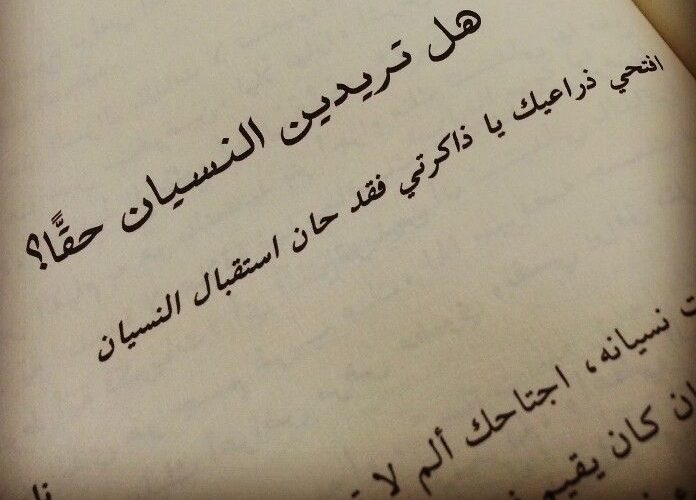 هل تريدين النسيان حقًّا؟
افتحي ذراعيك يا ذاكرتي فقد حان استقبال النسيان
نسيانه، اجتاحك ألم لا
كان يقيم